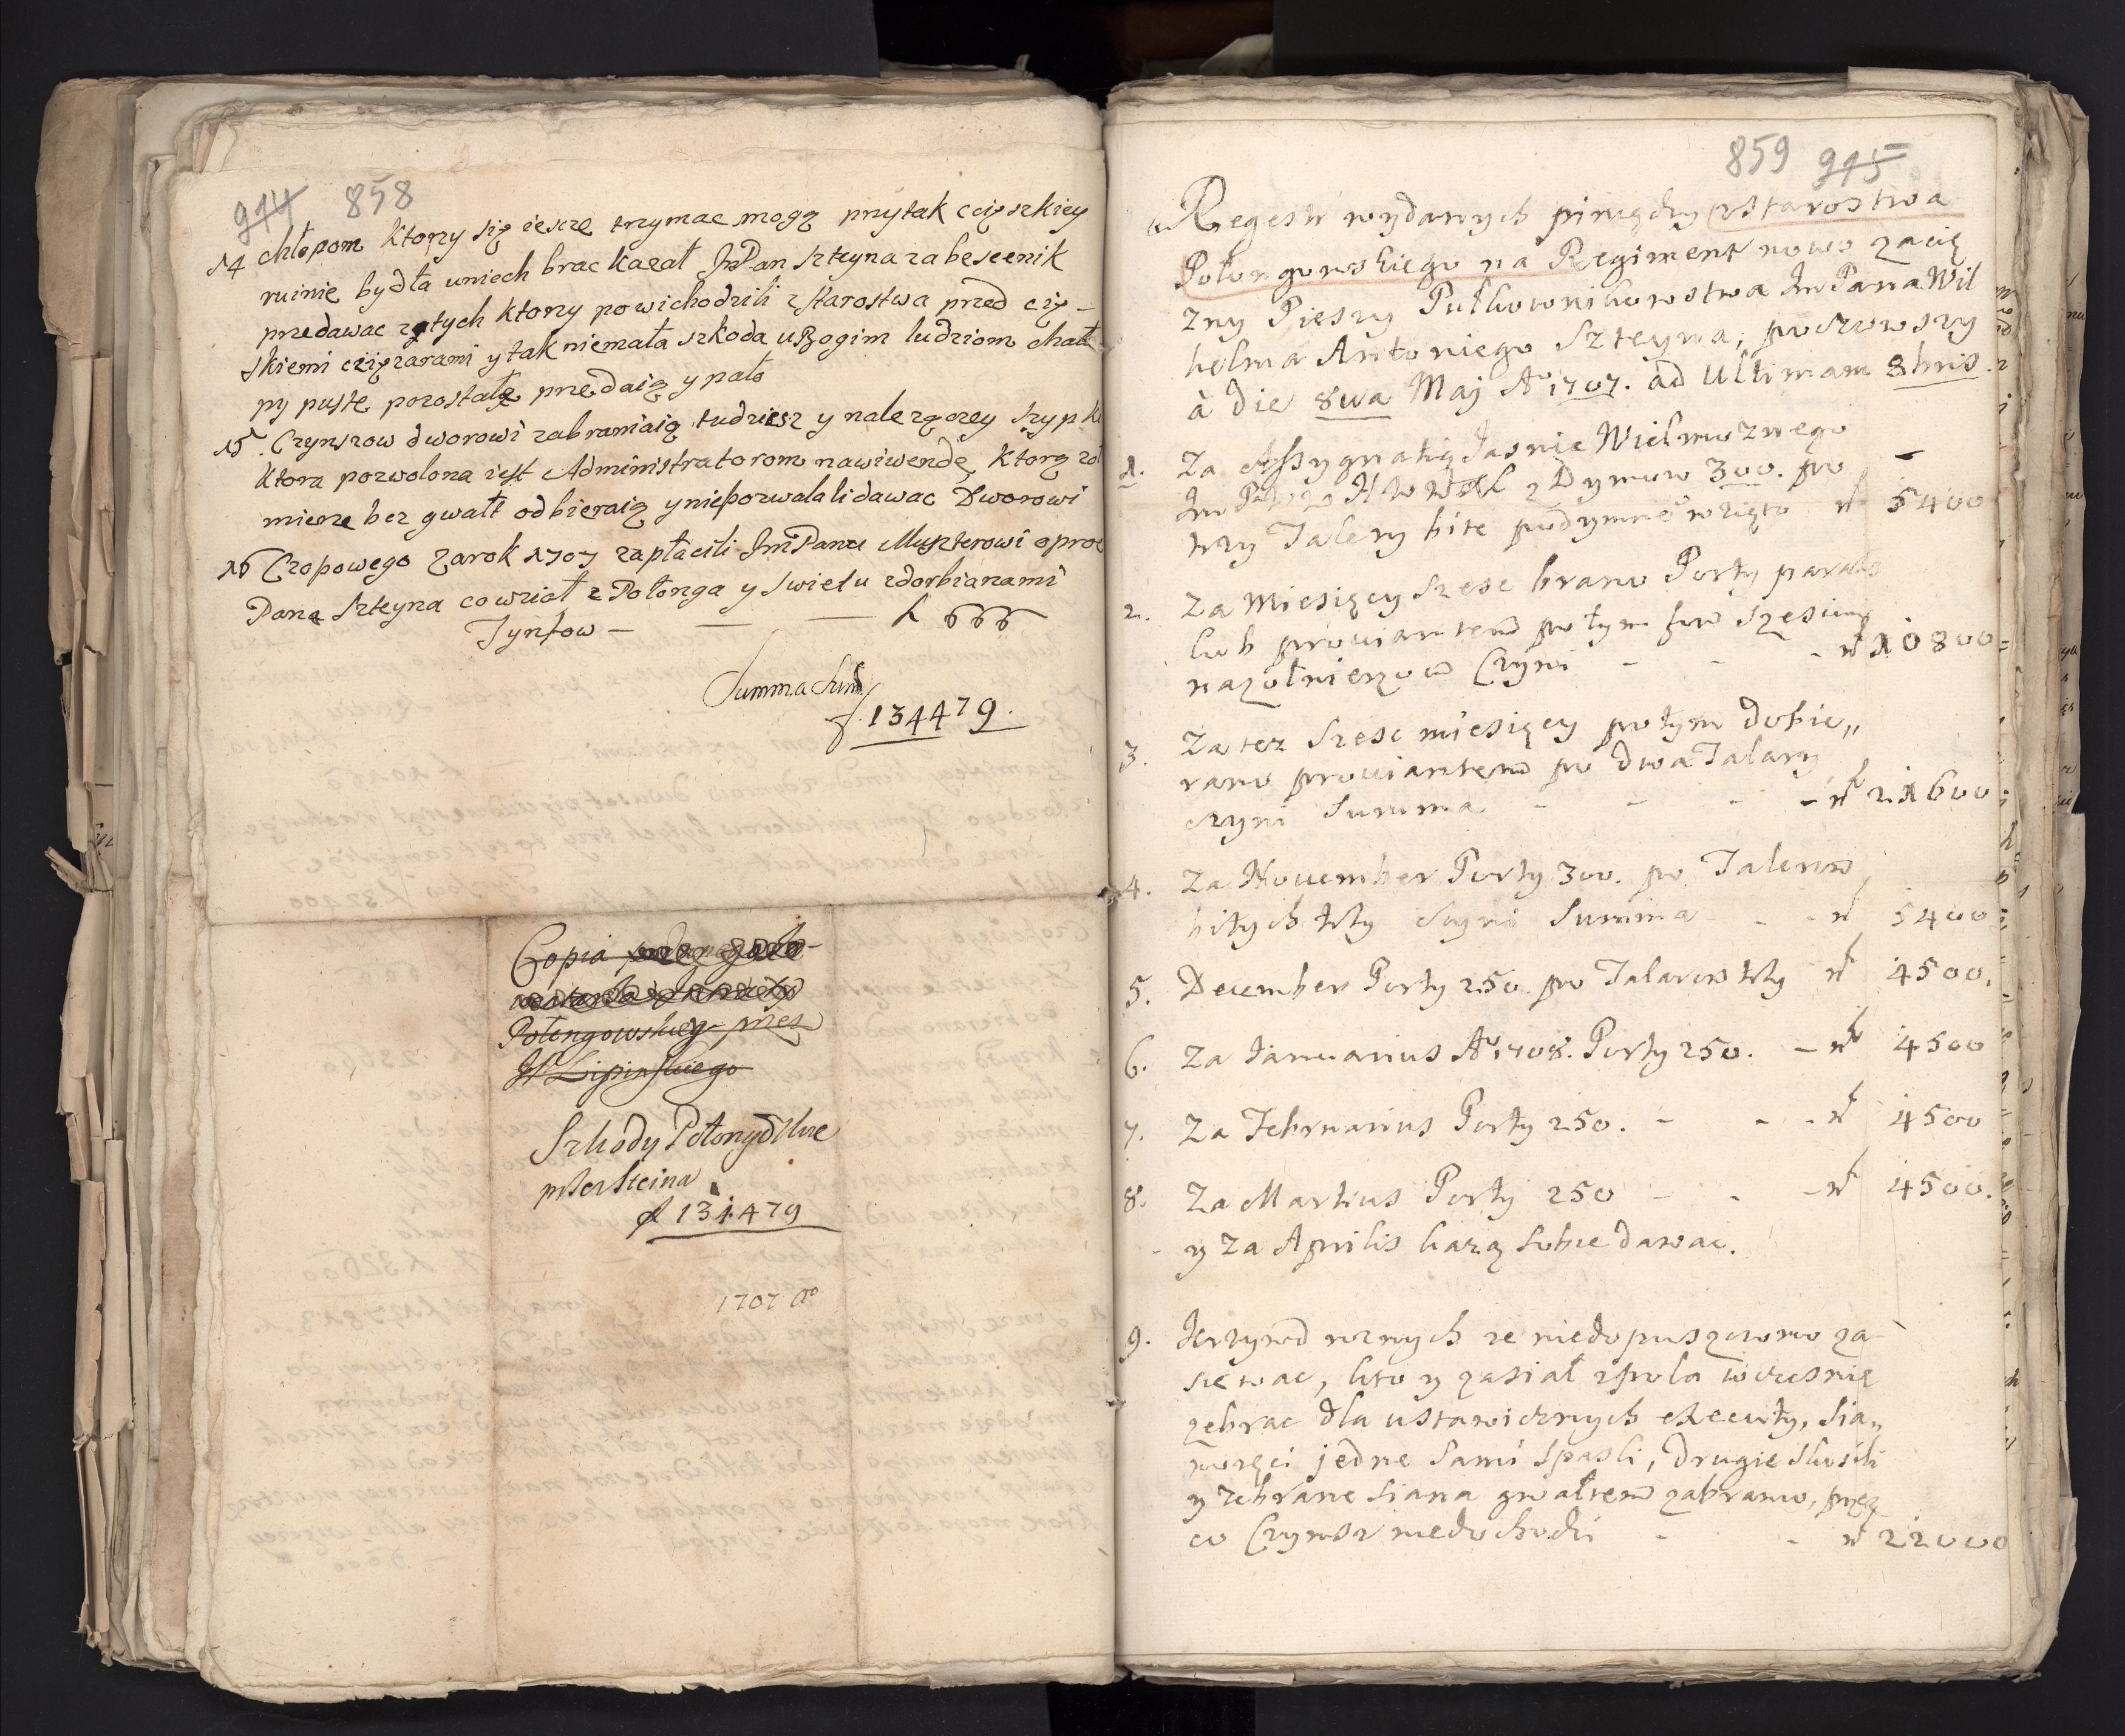 914 858
14 chłopom ktorzy się iescze trzymac mogą przy tak ccięszkiey
ruinie bydła uniech brac kazał JmPan Szteyna za bescenik
przedawac z tych ktorzy powichodzili z starostwa przed cię-
szkiemi cziężarami y tak niemała szkoda ubogim ludziom chału
py puste pozostałe przedaią y palo
15. Czynszow dworowi zabraniaią tudziesz y nalezgorey szypk
ktora pozwolona iest Administratorom nawiwendę, ktorą zol
mierze bez gwałt odbieraią y niepozwalali dawac Dworowi
16 Czopowego za rok 1707 zapłacili JmPanu Muszterowi oproc
Pana Szteyna co wzioł z Połonga y Swietu zdorbianami
Tynfow — — — 666
Summa Sum
f. 134479.
Copia
Połongowskiey przez
Lipinskiego
Szkody Połong
przez Steina
f 134479
1707 Ao
859 915
Regestr wydanych piniędzy z starostwa
Połongowskiego na Regiment nowo zacię
zny Pieszy Pułkownikowstwa Jm Pana Wil
helma Antoniego Szteyna, poczowszy
à die 8va Maj Ao 1707. ad Ultimam 8bris.
1. Za Assygnatią Jasnie Wielmoznego
z Dymow 300. po
trzy Talery bite podymne wzięto fl 5400
2. Za Miesięcy szesc brano Porty
lub prouiantem po tym
na zołnierzow Czyni - - - fl 10800
3. Za tez szesc miesięcy potym dobie„
rano prouiantem po dwa Talary
czyni Summa - - - fl 21600
4. Za Nouember Porty 300. po Talerow
bitych trzy czyni Summa - - fl 5400
5. December Porty 250 po Talarow trzy fl 4500.
6. Za Januarius Ao 1708. Porty 250. - fl 4500
7. Za Februarius Porty 250. - - - fl 4500
8. Za Martius Porty 250 - - - fl 4500.
y za Aprilis każą sobie dawac.
9. Krzywd roznych ze niedopuszczono za-
siewac, kto y zasiał z pola wczesnię
zebrac dla ustawicznych executy, sia„
nozęci jedne sami spasli, drugie skosili
y zebrane siana gwałtem zabrano, przez
co Czynsz niedochodzi - - fl 22000